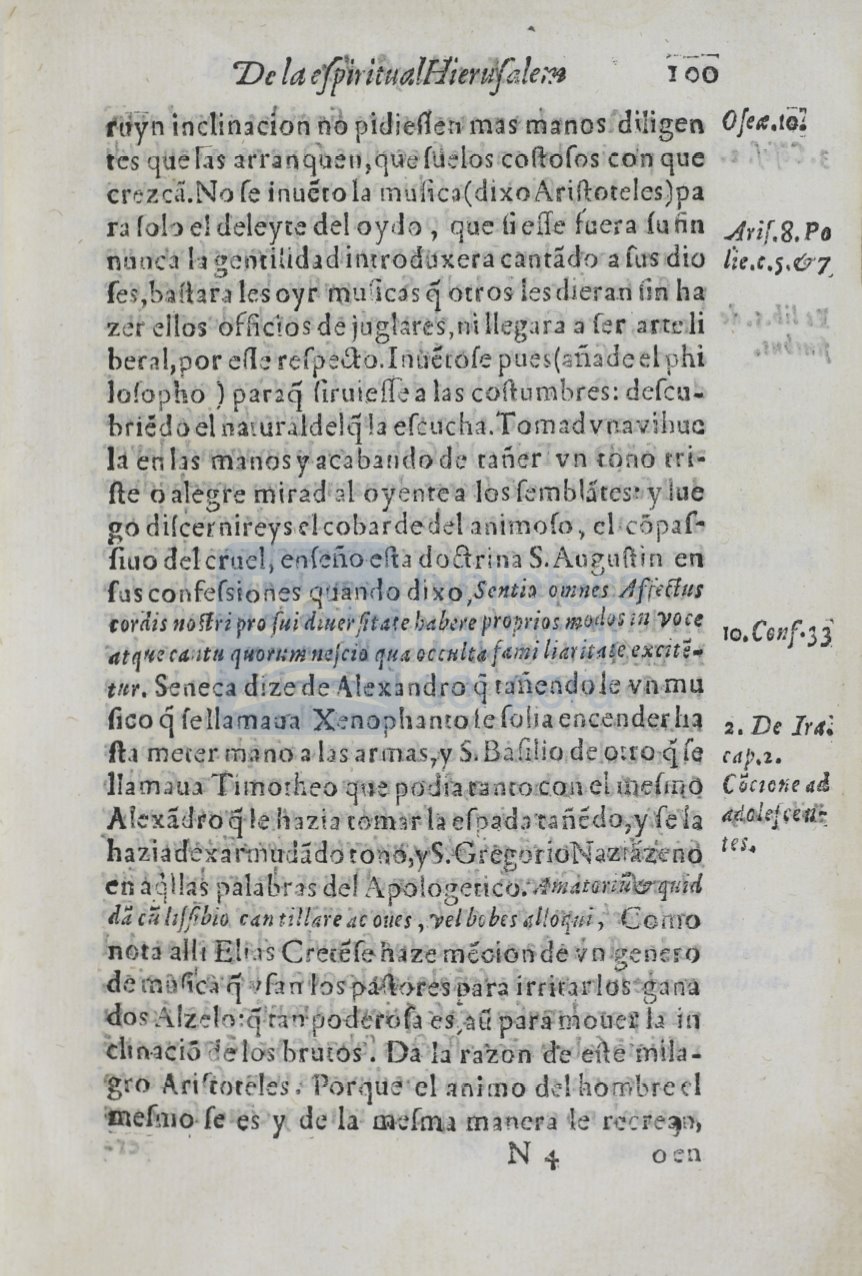 De la eſpiritual Hieruſalem 100
ruyn inclinacion no pidieſſen mas manos diligen
tes que las arranquen, que ſuelos coſtoſos con que
crezcã. No ſe inuẽto la muſica (dixo Ariſtoteles) pa
ra ſolo el deleyte del oydo, que ſi eſſe fuera ſu fin
nunca la gentilidad introduxera cantãdo a ſus dio
ſes, baſtara les oyr muſicas q̃ otros les dieran ſin ha
zer ellos officios de juglares, ni llegara a ſer arte li
beral, por eſſe reſpecto. Inuẽtoſe pues (añade el phi
loſopho) paraq̃ ſiruieſſe a las coſtumbres: deſcu-
briẽdo el natural del q̃ la eſcucha. Tomad vna vihue
la en las manos y acabando de tañer vn tono tri-
ſte o alegre mirad al oyente a los ſemblãtes: y lue
go diſcernireys el cobarde del animoſo, el cõpaſ-
ſiuo del cruel, enſeño eſta doctrina S. Auguſtin en
ſus confeſsiones quando dixo, Sentio omnes Affectus
cordis noſtri pro ſui diuerſitate habere proprios modos in voce
atque cantu quorum neſcio qua occulta familiaritate excitẽ-
tur. Seneca dize de Alexandro q̃ tañendole vn mu
ſico q̃ ſe llamaua Xenophanto le ſolia encender ha
ſta meter mano a las armas, y S. Baſilio de otro q̃ ſe
llamaua Timotheo que podia tanto con el meſmo
Alexãdro q̃ le hazia tomar la eſpada tañẽdo, y ſe la
hazia dexar mudãdo tono, y S. Gregorio Naziãzeno
en aq̃llas palabras del Apologetico. Amatoriũ & quid
dã cũ liſſibio cantillare ac oues, vel bobes alloqui, Como
nota alli Elias Cretẽſe haze mẽcion de vn genero
de muſica q̃ vſan los paſtores para irritar los gana
dos Alzelo: q̃ tan poderoſa es, aũ para mouer la in
clinaciõ de los brutos. Da la razon de eſte mila-
gro Ariſtoteles. Porque el animo del hombre el
meſmo ſe es y de la meſma manera le recrean,
N 4 o en
Oſeæ. 10.
Ariſ. 8. Po
lit. c. 5. & 7
10. Conf. 33
2. De Ira.
cap. 2.
Cõcione ad
adoleſcen-
tes.